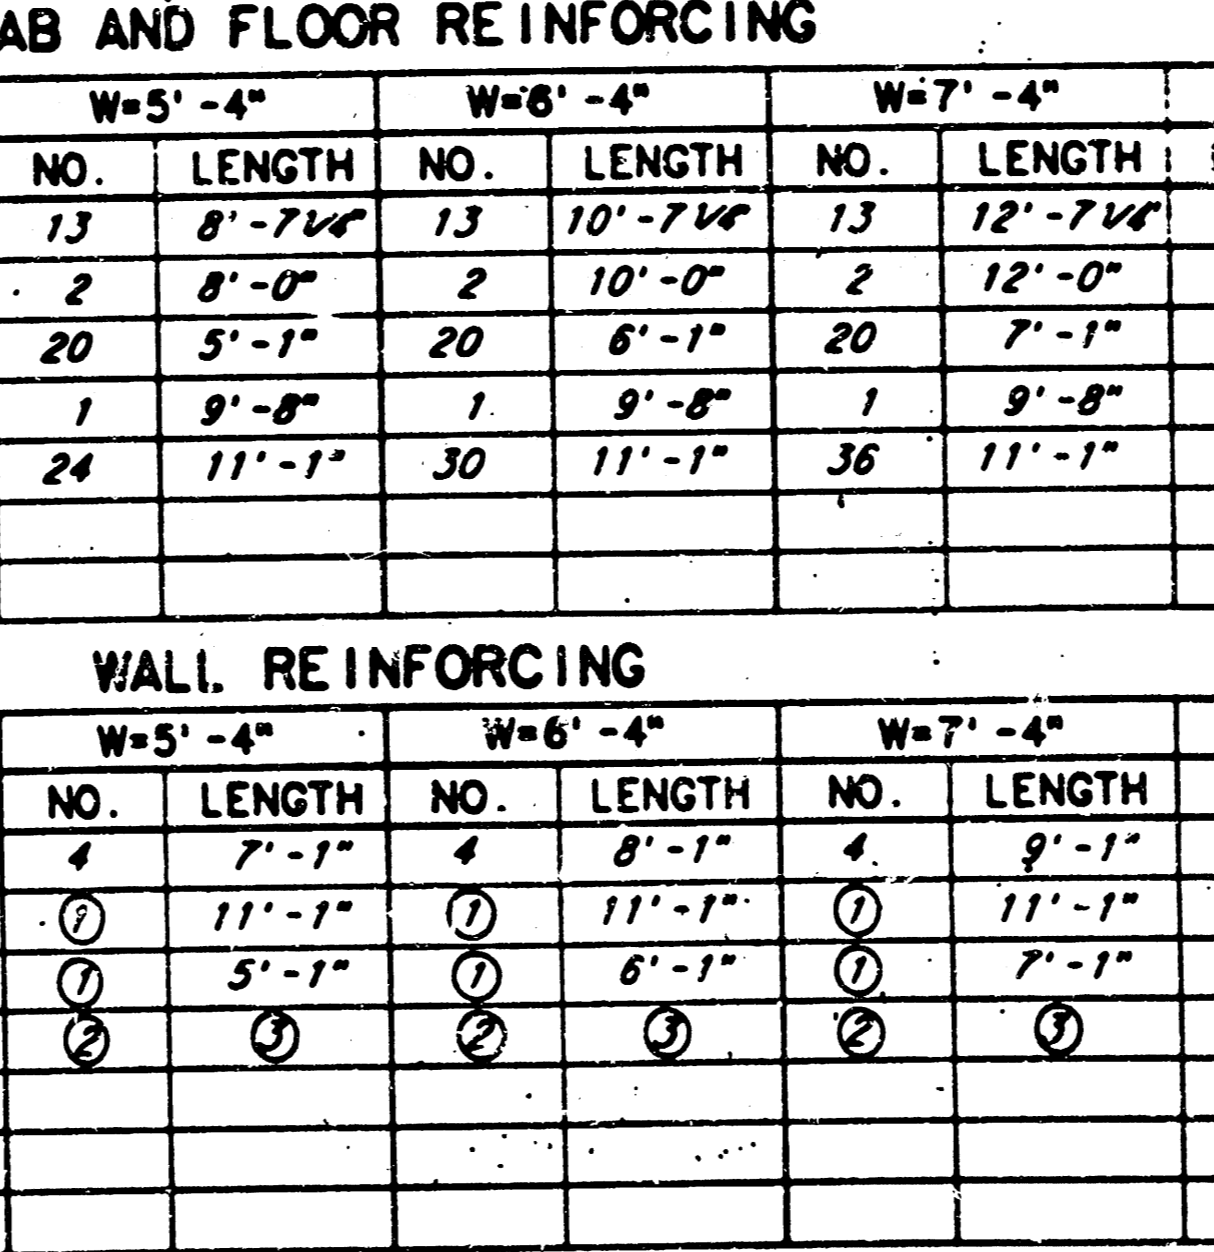 AB AND FLOOR REINFORCING
W=5'-4" W=6'-4" W=7'-4"
NO. LENGTH NO. LENGTH NO. LENGTH
13 8'-7 13 10'-7 13 12'-7
2 8'-0" 2 10'-0" 2 12'-0"
20 5'-1" 20 6'-1" 20 7'-1"
1 9'-8" 1 9'-8" 1 9'-8"
24 11'-1" 30 11'-1" 36 11'-1"
WALL REINFORCING
W=5'-4" W=6'-4" W=7'-4"
NO. LENGTH NO. LENGTH NO. LENGTH
4 7'-1" 4 8'-1" 4 9'-1"
① 11'-1" ① 11'-1" ① 11'-1"
① 5'-1" ① 6'-1" ① 7'-1"
② ③ ② ③ ② ③